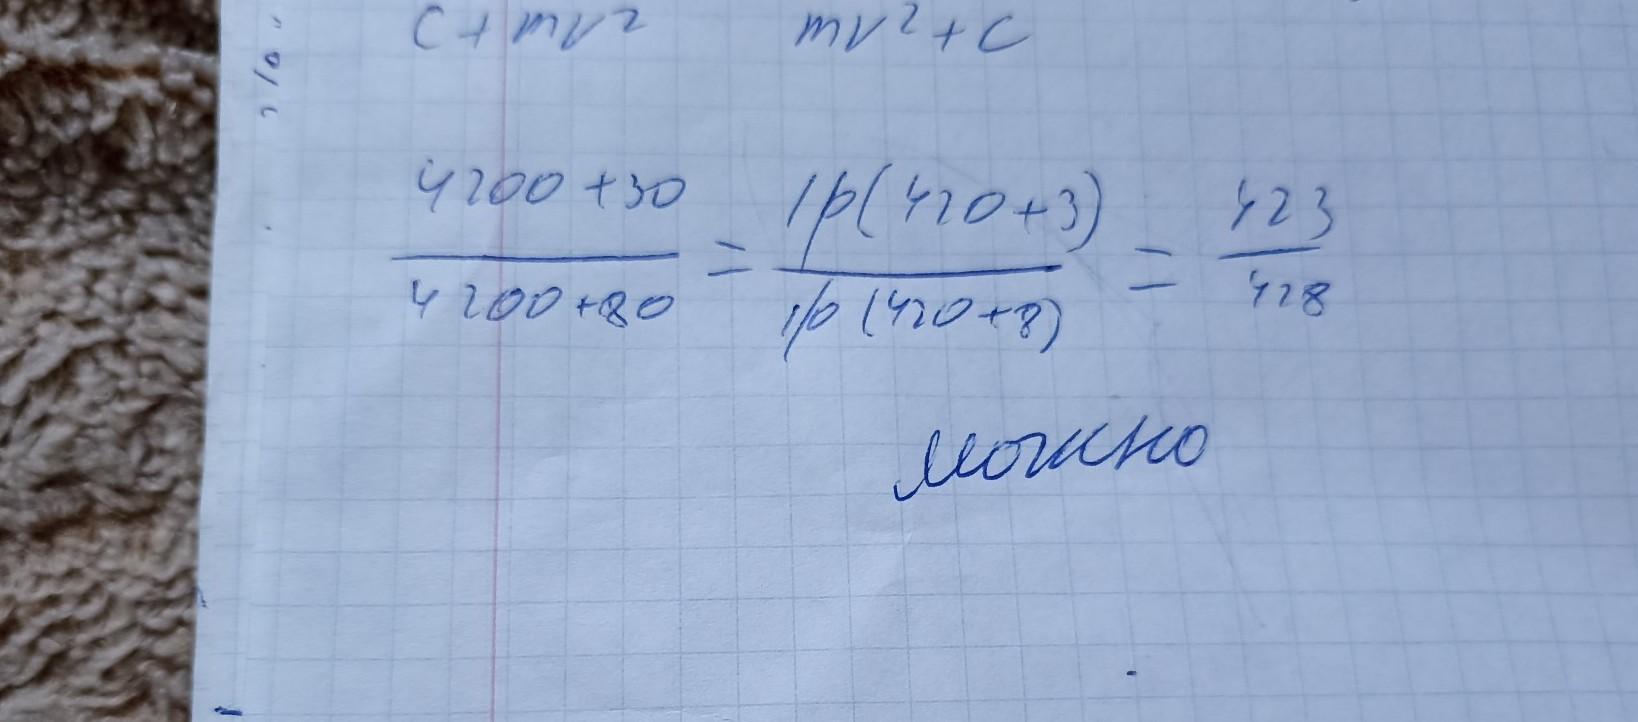 c+mv² mv²+c
4200+30 / 4200+80 = 10(420+3) / 10(420+8) = 423 / 428
можно